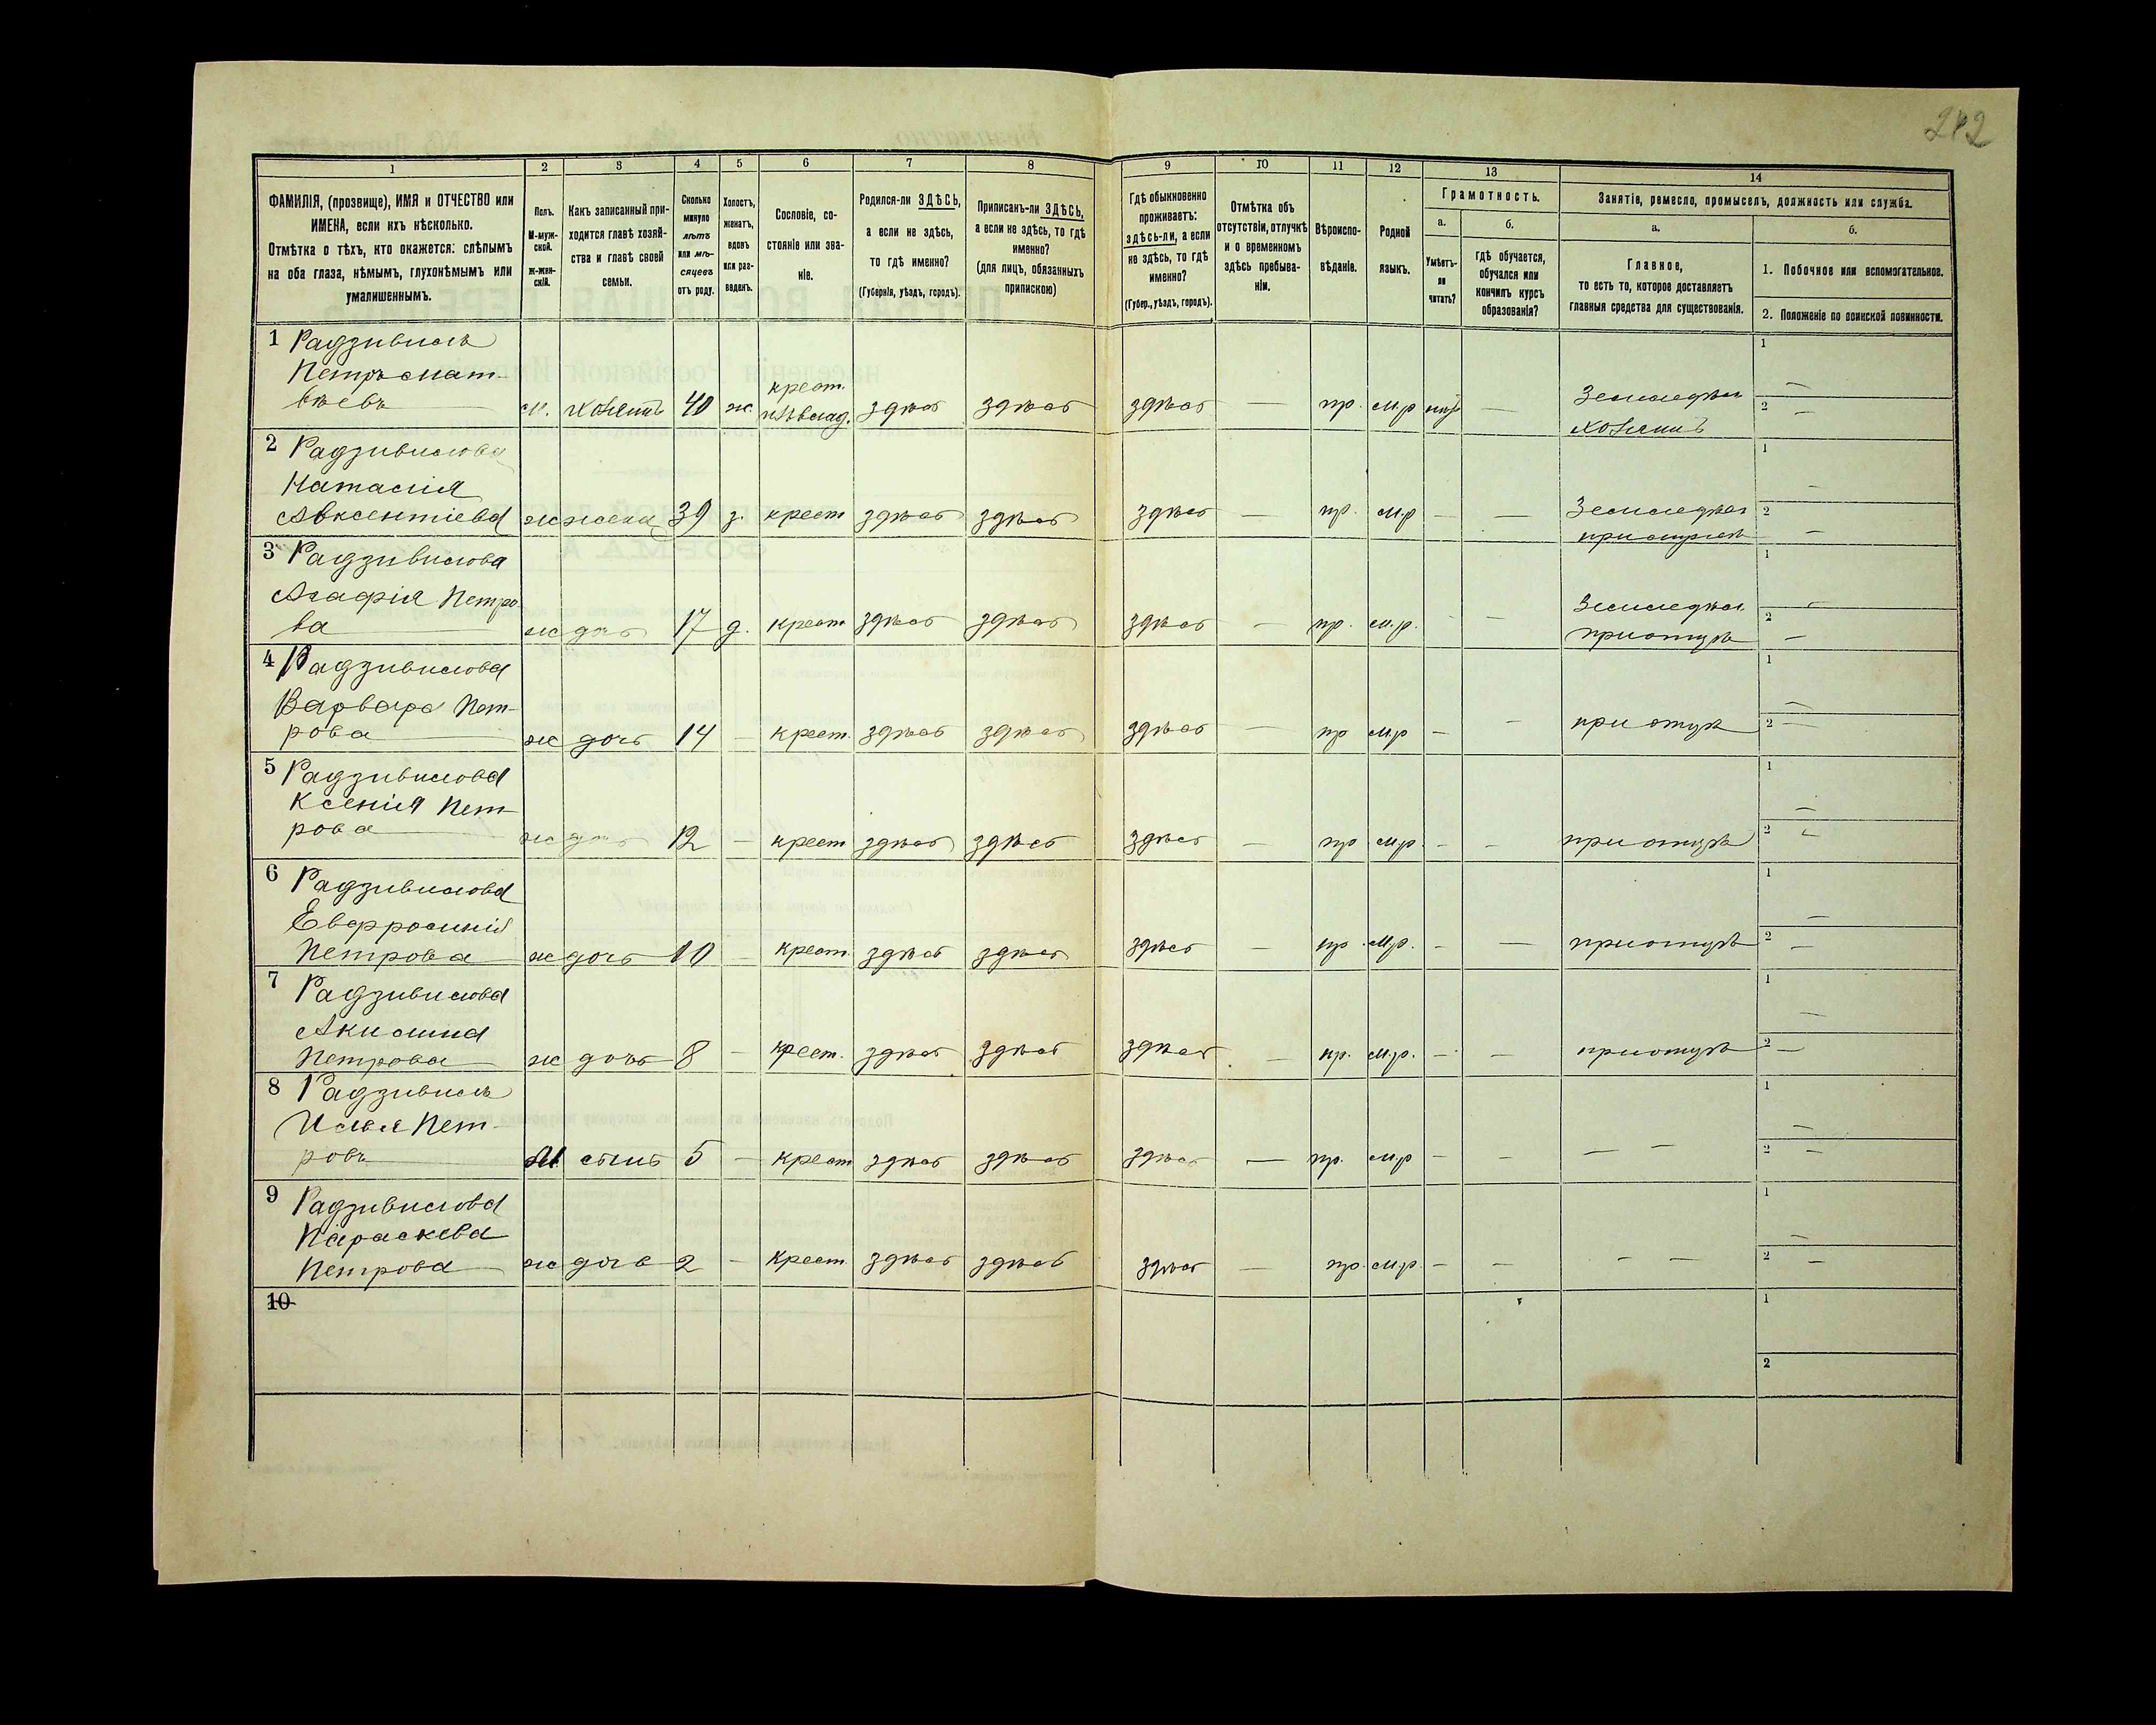 242
1 2 3 4 5 6 7 8 9 10 11 12 13 14
ФАМИЛІЯ, (прозвище), ИМЯ и ОТЧЕСТВО или
ИМЕНА, если ихъ нѣсколько.
Отмѣтка о тѣхъ, кто окажется: слѣпымъ
на оба глаза, нѣмымъ, глухонѣмымъ или
умалишеннымъ.
Полъ.
М-муж-
ской.
ж-жен-
скій.
Какъ записанный при-
ходится главѣ хозяй-
ства и главѣ своей
семьи.
Сколько
минуло
лѣтъ
или мѣ-
сяцевъ
отъ роду.
Холостъ,
женатъ,
вдовъ
или раз-
веденъ.
Сословіе, со-
стояніе или зва-
ніе.
Родился-ли ЗДѢСЬ,
а если не здѣсь,
то гдѣ именно?
(Губернія, уѣздъ, городъ).
Приписанъ-ли ЗДѢСЬ,
а если не здѣсь, то гдѣ
именно?
(для лицъ, обязанныхъ
припискою)
Гдѣ обыкновенно
проживаетъ:
здѣсь-ли, а если
не здѣсь, то гдѣ
именно?
(Губер., уѣздъ, городъ).
Отмѣтка объ
отсутствіи, отлучкѣ
и о временномъ
здѣсь пребыва-
ніи.
Вѣроиспо-
вѣданіе.
Родной
языкъ.
Грамотность.
а.
Умѣетъ-
ли
читать?
б.
гдѣ обучается,
обучался или
кончилъ курсъ
образованія?
Занятіе, ремесло, промыселъ, должность или служба.
а.
Главное,
то есть то, которое доставляетъ
главныя средства для существованія.
б.
1. Побочное или вспомогательное.
2. Положеніе по воинской повинности.
1 Радзивилъ
Петръ Мат-
вѣевъ м. хозяинъ 40 ж. крест. здѣсь здѣсь здѣсь — пр. м.р — Земледѣл 1 —
хозяинъ 2 —
2 Радзивилова
Наталія
Авксентіева ж жена 39 з. крест здѣсь здѣсь здѣсь — пр. м.р — — Земледѣл 1 —
2 —
3 Радзивилова
Агафія Петро
ва ж дочь 17 д. крест здѣсь здѣсь здѣсь — пр. м.р. — — Земледѣл. 1 —
при отцѣ 2 —
4 Радзивилова
Варвара Пет-
рова ж дочь 14 — крест. здѣсь здѣсь здѣсь — пр м.р — — при отцѣ 1 —
2 —
5 Радзивилова
Ксенія Пет-
рова ж дочь 12 — крест здѣсь здѣсь здѣсь — пр м.р. — — при отцѣ 1 —
2 —
6 Радзивилова
Евфросинія
Петрова ж дочь 10 — крест. здѣсь здѣсь здѣсь — пр. м.р. — — при отцѣ 1 —
2 —
7 Радзивилова
Акилина
Петрова ж дочь 8 — крест. здѣсь здѣсь здѣсь — пр. м.р. — — при отцѣ 1 —
2 —
8 Радзивилъ
Илья Пет-
ровъ М сынъ 5 — крест здѣсь здѣсь здѣсь — пр. м.р — — — — 1 —
2 —
9 Радзивилова
Параскева
Петрова ж дочь 2 — крест здѣсь здѣсь здѣсь — пр. м.р. — — — — 1 —
2 —
10
1
2